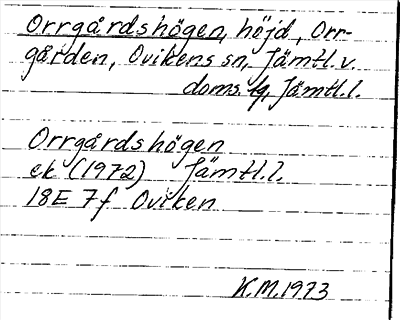 Orrgårdshögen, höjd, Orr-
gården, Ovikens sn, Jämtl.v.
doms.tg, Jämtl.l.
Orrgårdshögen
ek (1972) Jämtl.l.
18E 7f Oviken
K.M.1973